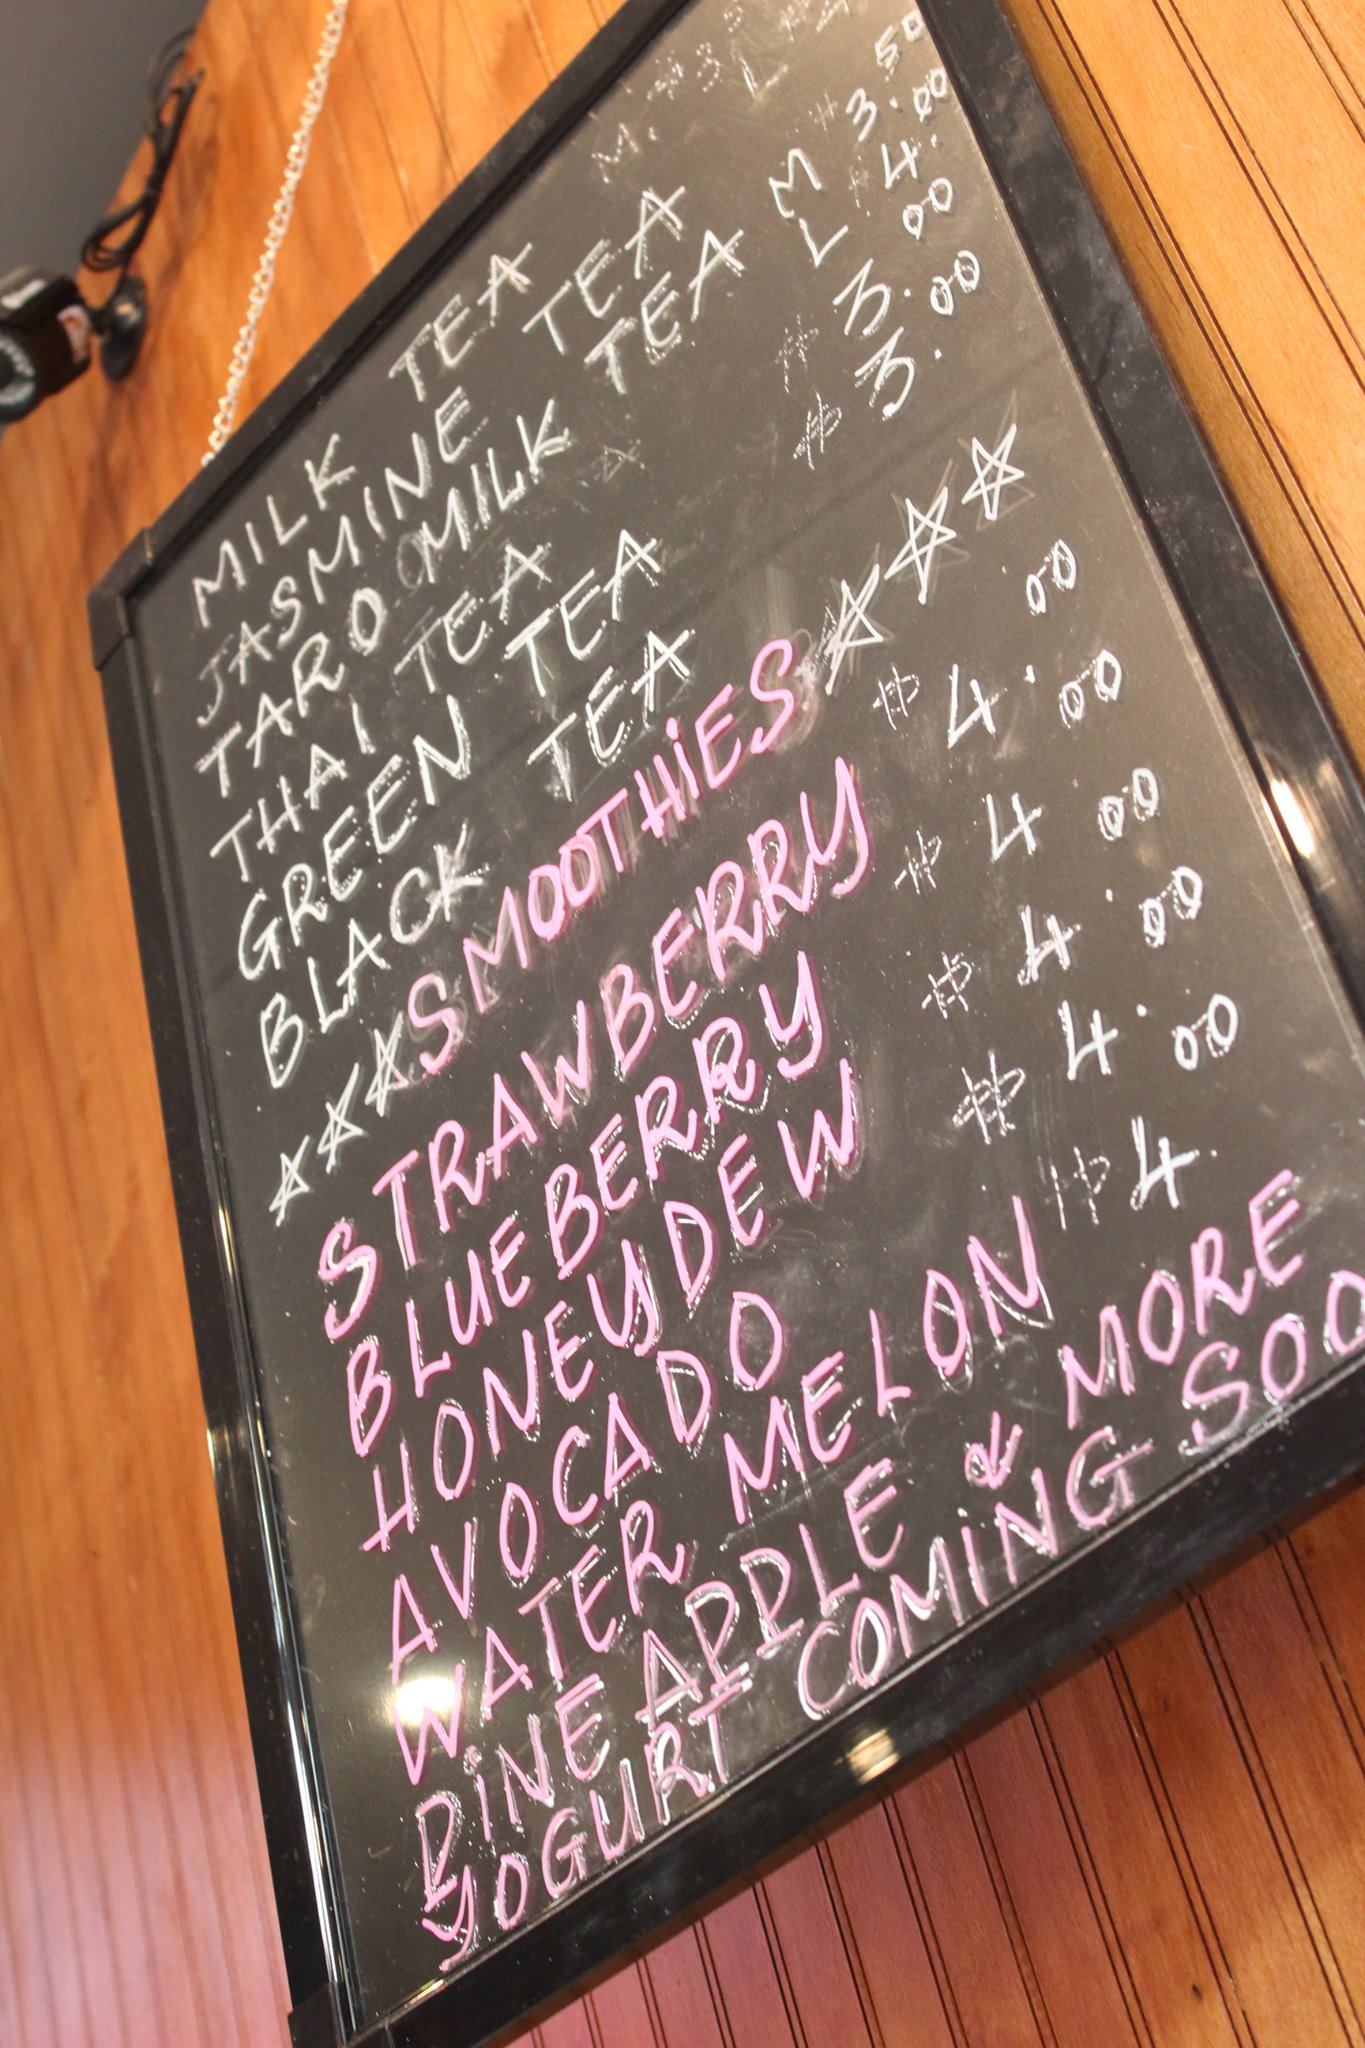 MILK TEA M.
JASMINE TEA
TARO MILK TEA M $3.50
THAI TEA L $4.00
GREEN TEA $3.00
BLACK TEA $3.00
SMOOTHIES
STRAWBERRY $4.00
BLUEBERRY $4.00
HONEYDEW $4.00
AVOCADO $4.00
WATER MELON $4.00
PiNEAPPLE & MORE
YOGURT COMiNG SOO